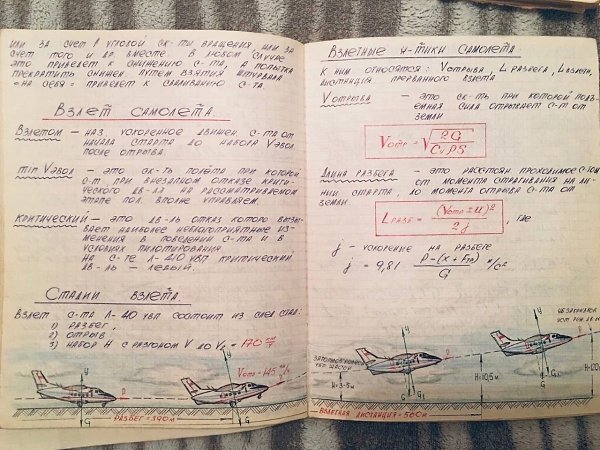 ИЛИ ЗА СЧЕТ ↑ УГЛОВОЙ СК-ТИ ВРАЩЕНИЯ, ИЛИ ЗА
СЧЕТ ТОГО И ДР. ВМЕСТЕ. В ЛЮБОМ СЛУЧАЕ
ЭТО ПРИВЕДЕТ К СНИЖЕНИЮ С-ТА, А ПОПЫТКА
ПРЕКРАТИТЬ СНИЖЕН. ПУТЕМ ВЗЯТИЯ ШТУРВАЛА
«НА СЕБЯ» ПРИВЕДЕТ К СВАЛИВАНИЮ С-ТА.
ВЗЛЕТ САМОЛЕТА.
ВЗЛЕТОМ – НАЗ УСКОРЕННОЕ ДВИЖЕН. С-ТА ОТ
НАЧАЛА СТАРТА ДО НАБОРА VЭВОЛ.
ПОСЛЕ ОТРЫВА.
min VЭВОЛ – ЭТО СК-ТЬ ПОЛЕТА ПРИ КОТОРОЙ
С-Т ПРИ ВНЕЗАПНОМ ОТКАЗЕ КРИТИ-
ЧЕСКОГО ДВ-ЛЯ НА РАССМАТРИВАЕМОМ
ЭТАПЕ ПОЛ. ВПОЛНЕ УПРАВЛЯЕМ.
КРИТИЧЕСКИЙ – ЭТО ДВ-ЛЬ ОТКАЗ КОТОРОГО ВЫЗЫ-
ВАЕТ НАИБОЛЕЕ НЕБЛАГОПРИЯТНЫЕ ИЗ-
МЕНЕНИЯ В ПОВЕДЕНИИ С-ТА И В
УСЛОВИЯХ ПИЛОТИРОВАНИЯ.
НА С-ТЕ Л-410 УВП КРИТИЧЕСКИЙ
ДВ-ЛЬ – ЛЕВЫЙ.
СТАДИИ ВЗЛЕТА.
ВЗЛЕТ С-ТА Л-40 УВП СОСТОИТ ИЗ СЛЕД СТАД:
1) РАЗБЕГ,
2) ОТРЫВ
3) НАБОР H С РАЗГОНОМ V ДО V₂ = 170 км/ч
Y
P
G
РАЗБЕГ = 390 М
Vотр = 145 км/ч
Y
G
ВЗЛЕТНЫЕ Х-ТИКИ САМОЛЕТА
К НИМ ОТНОСЯТСЯ: VОТРЫВА, L РАЗБЕГА, LВЗЛЕТН,
ДИСТАНЦИЯ ПРЕРВАННОГО ВЗЛЕТА
VОТРЫВА – ЭТО СК-ТЬ ПРИ КОТОРОЙ ПОДЪ-
ЕМНАЯ СИЛА ОТРЫВАЕТ С-Т ОТ
ЗЕМЛИ
Vотр = √2G/CyρS
ДЛИНА РАЗБЕГА – ЭТО РАССТОЯН. ПРОХОДИМОЕ С-ТОМ
ОТ МОМЕНТА СТРАГИВАНИЯ НА ЛИ-
НИИ СТАРТА, ДО МОМЕНТА ОТРЫВА С-ТА ОТ
ЗЕМЛИ.
Lразб = (Vотр ± U)²/2j, ГДЕ
j – УСКОРЕНИЕ НА РАЗБЕГЕ
j = 9,81 P-(X+Fтр)/G м/с²
H=3-5м
Y
P
G
H=10,5м
Y
P
G
ВЗЛЕТНАЯ ДИСТАНЦИЯ = 560м